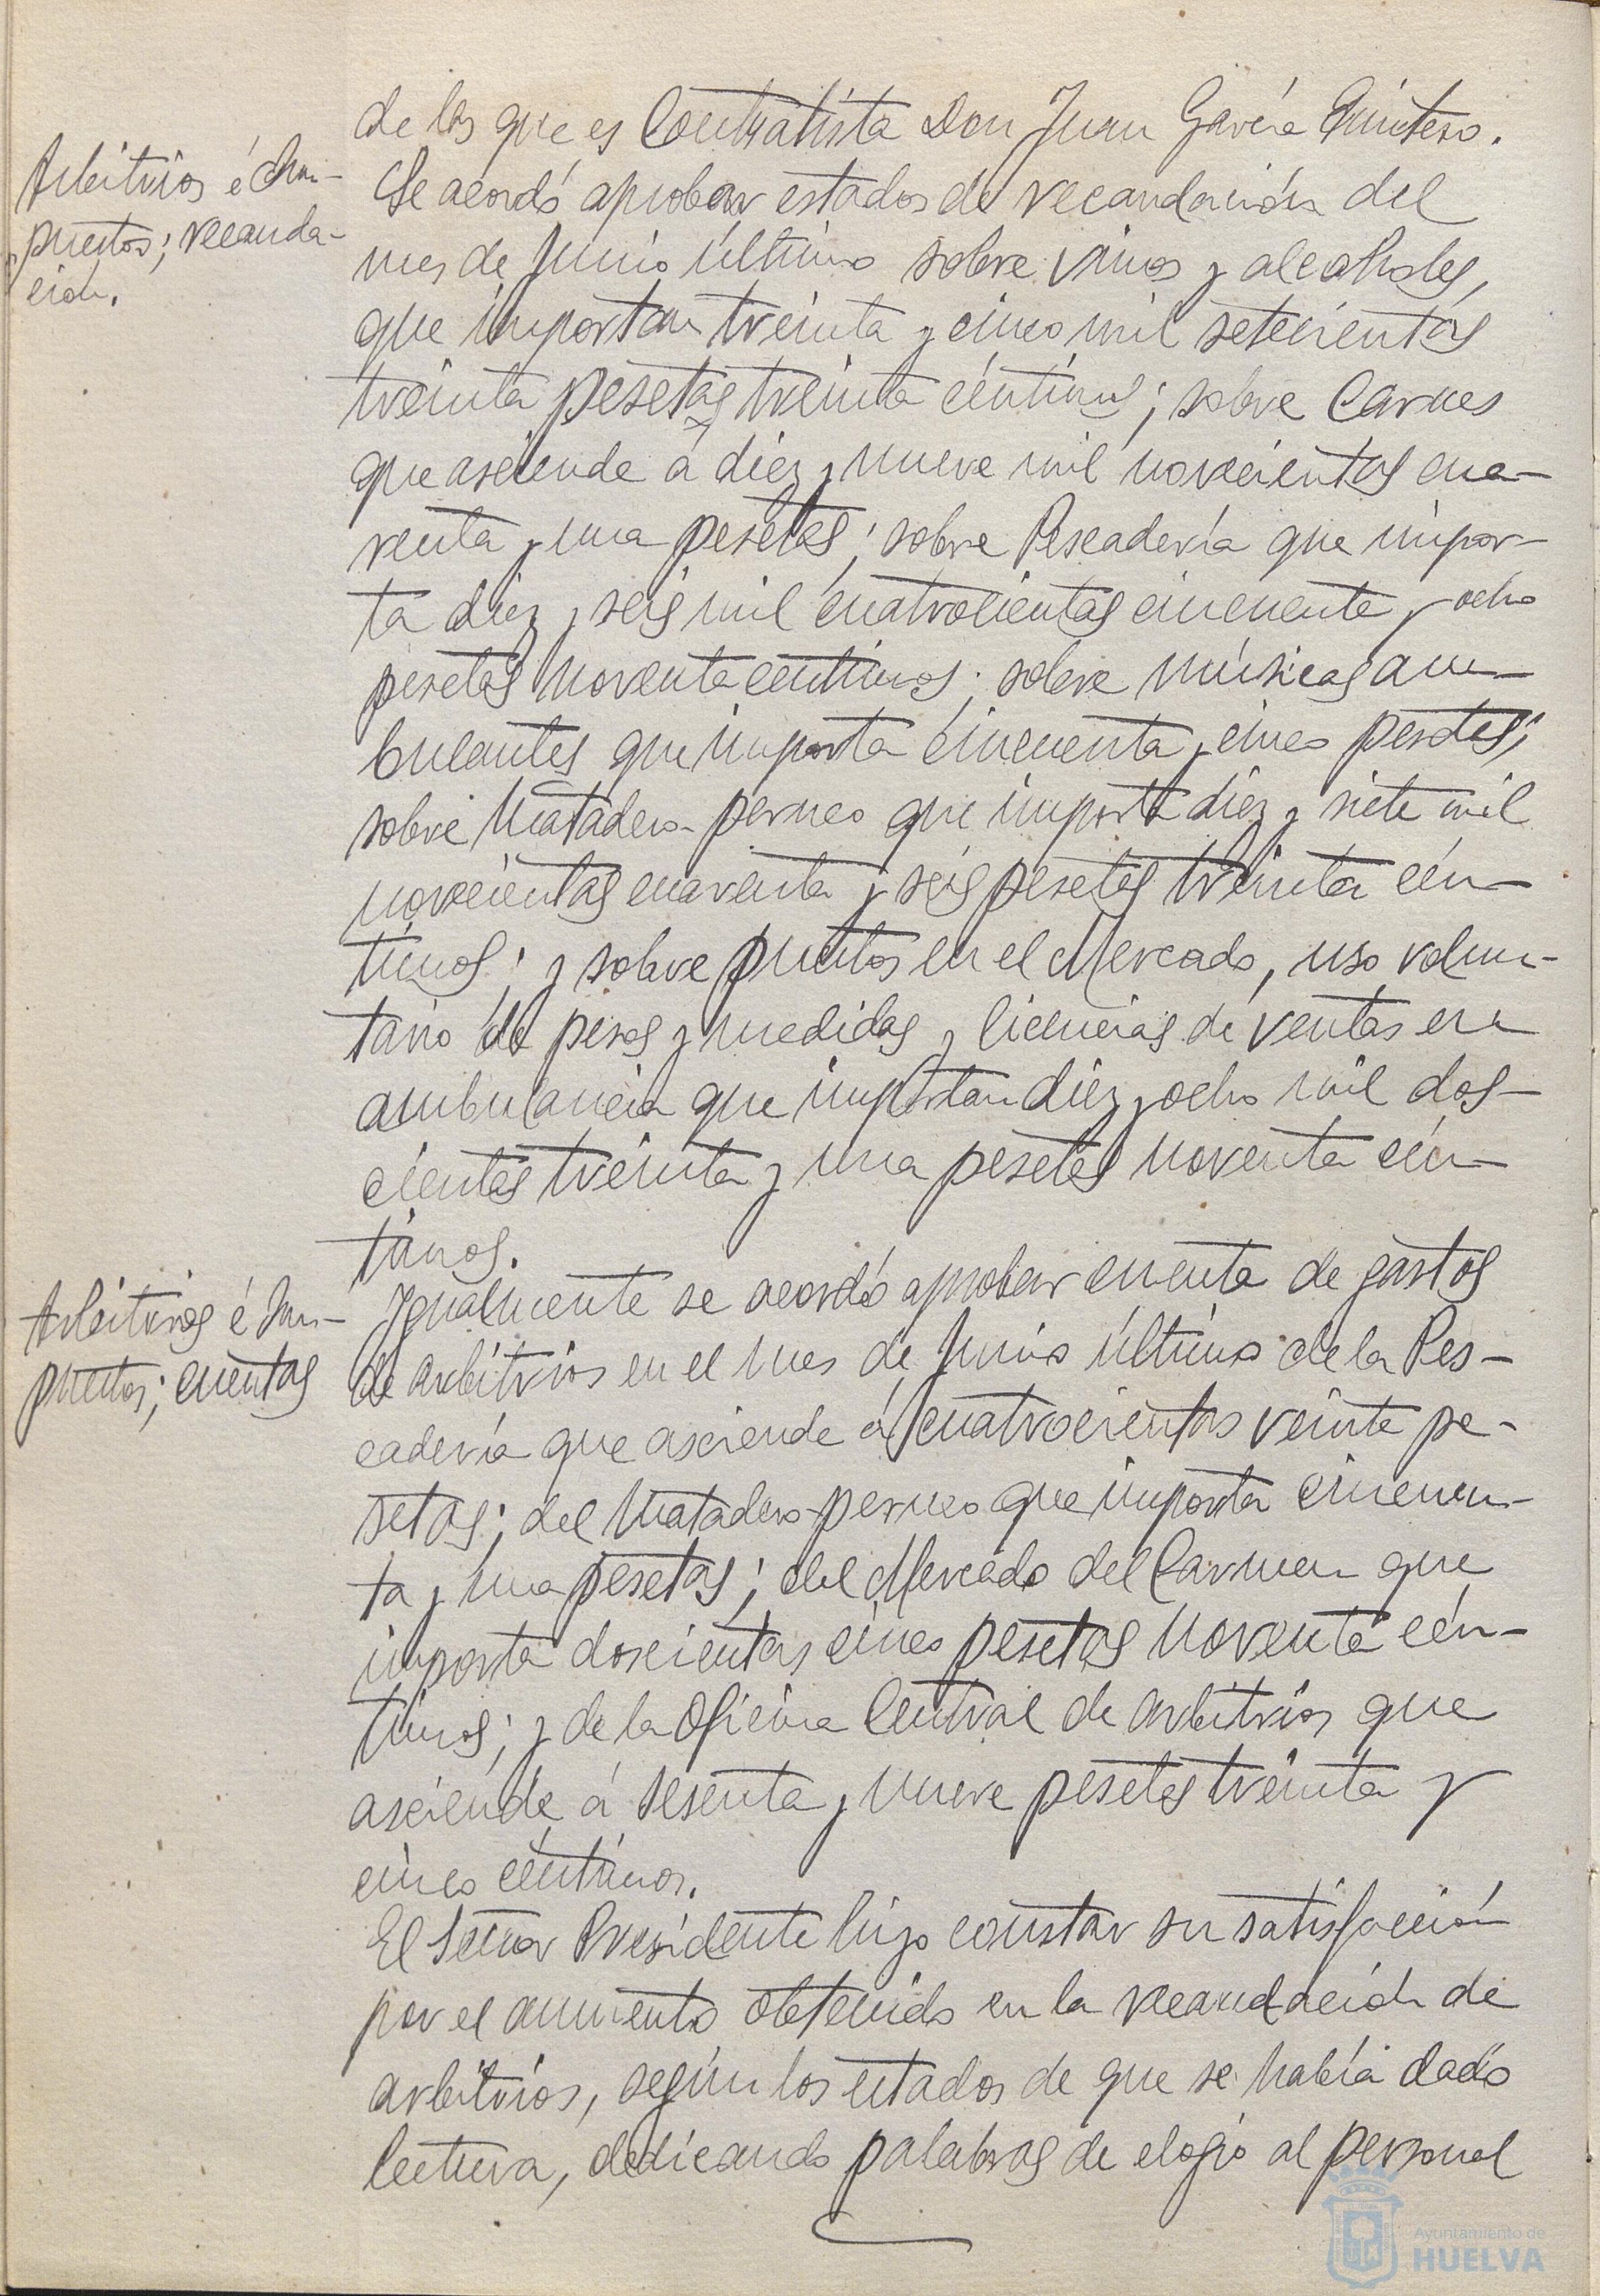 de las que es Contratista Don Juan García Quintero.
Arbitrios é Im-
puestos; recauda-
ción.
Se acordó aprobar estados de recaudación del
mes de Junio último sobre vinos y alcoholes,
que importan treinta y cinco mil setecientas
treinta pesetas treinta céntimos; sobre Carnes
que asciende á diez y nueve mil novecientas cua-
renta y una pesetas; sobre Pescadería que impor-
ta diez y seis mil cuatrocientas cincuenta y ocho
pesetas noventa céntimos; sobre músicas am-
bulantes que importa cincuenta y cinco pesetas;
sobre Matadero-perneo que importa diez y siete mil
novecientas cuarenta y seis pesetas treinta cén-
timos; y sobre puestos en el Mercado, uso volun-
tario de pesas y medidas y licencias de ventas en
ambulancia que importan diez y ocho mil dos-
cientas treinta y una pesetas noventa cén-
timos.
Arbitrios é Im-
puestos; cuentas
Igualmente se acordó aprobar cuenta de gastos
de arbitrios en el mes de Junio último de la Pes-
cadería que asciende á cuatrocientas veinte pe-
setas; del Matadero-perneo que importa cincuen-
ta y una pesetas; del Mercado del Carmen que
importa doscientas cinco pesetas noventa cén-
timos; y de la Oficina Central de arbitrios que
asciende á sesenta y nueve pesetas treinta y
cinco céntimos.
El Señor Presidente hizo constar su satisfacción
por el aumento obtenido en la recaudación de
arbitrios, según los estados de que se había dado
lectura, dedicando palabras de elogio al personal
Ayuntamiento de
HUELVA